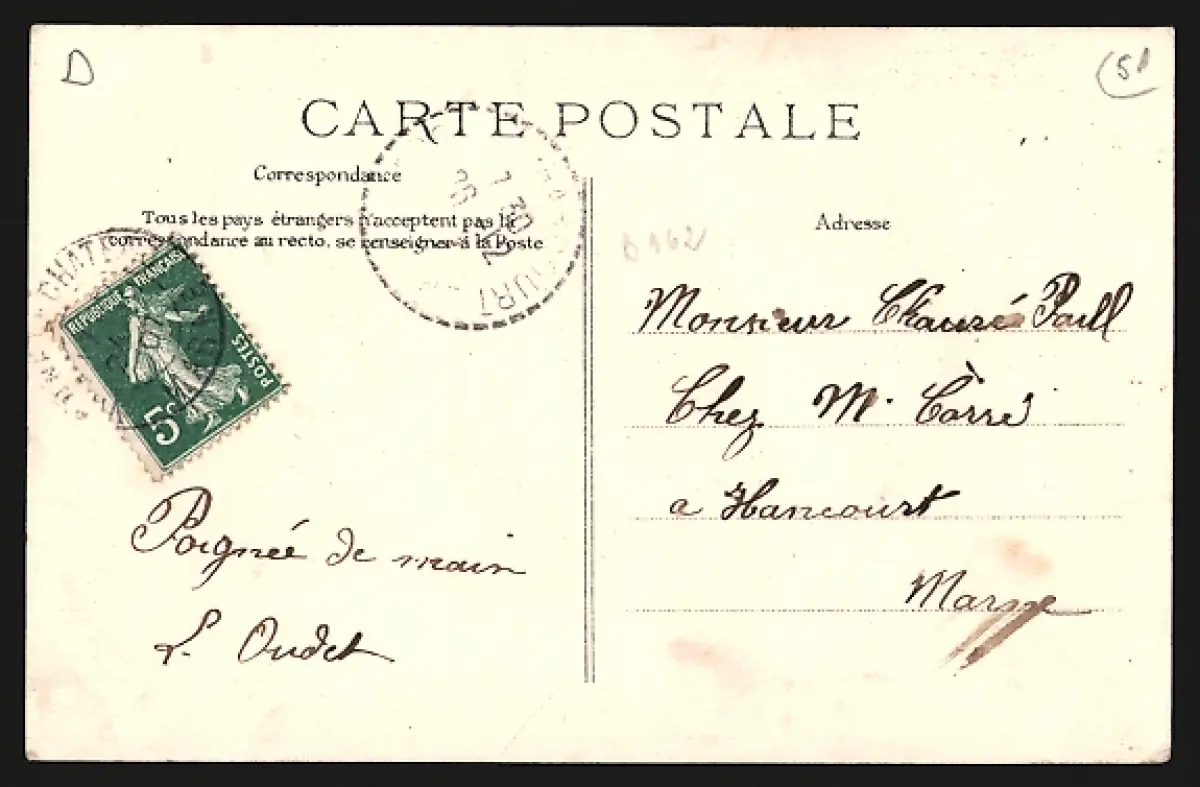 D
(51
CARTE POSTALE
Correspondance
Tous les pays étrangers n'acceptent pas la
correspondance au recto, se renseigner à la Poste
Adresse
D162
RÉPUBLIQUE FRANÇAISE
POSTES
5c
7 30
26
12
URT
CHATE
Monsieur Chauré Paul
Chez M. Corré
a Hancourt
Marne
Poignée de main
L. Oudet